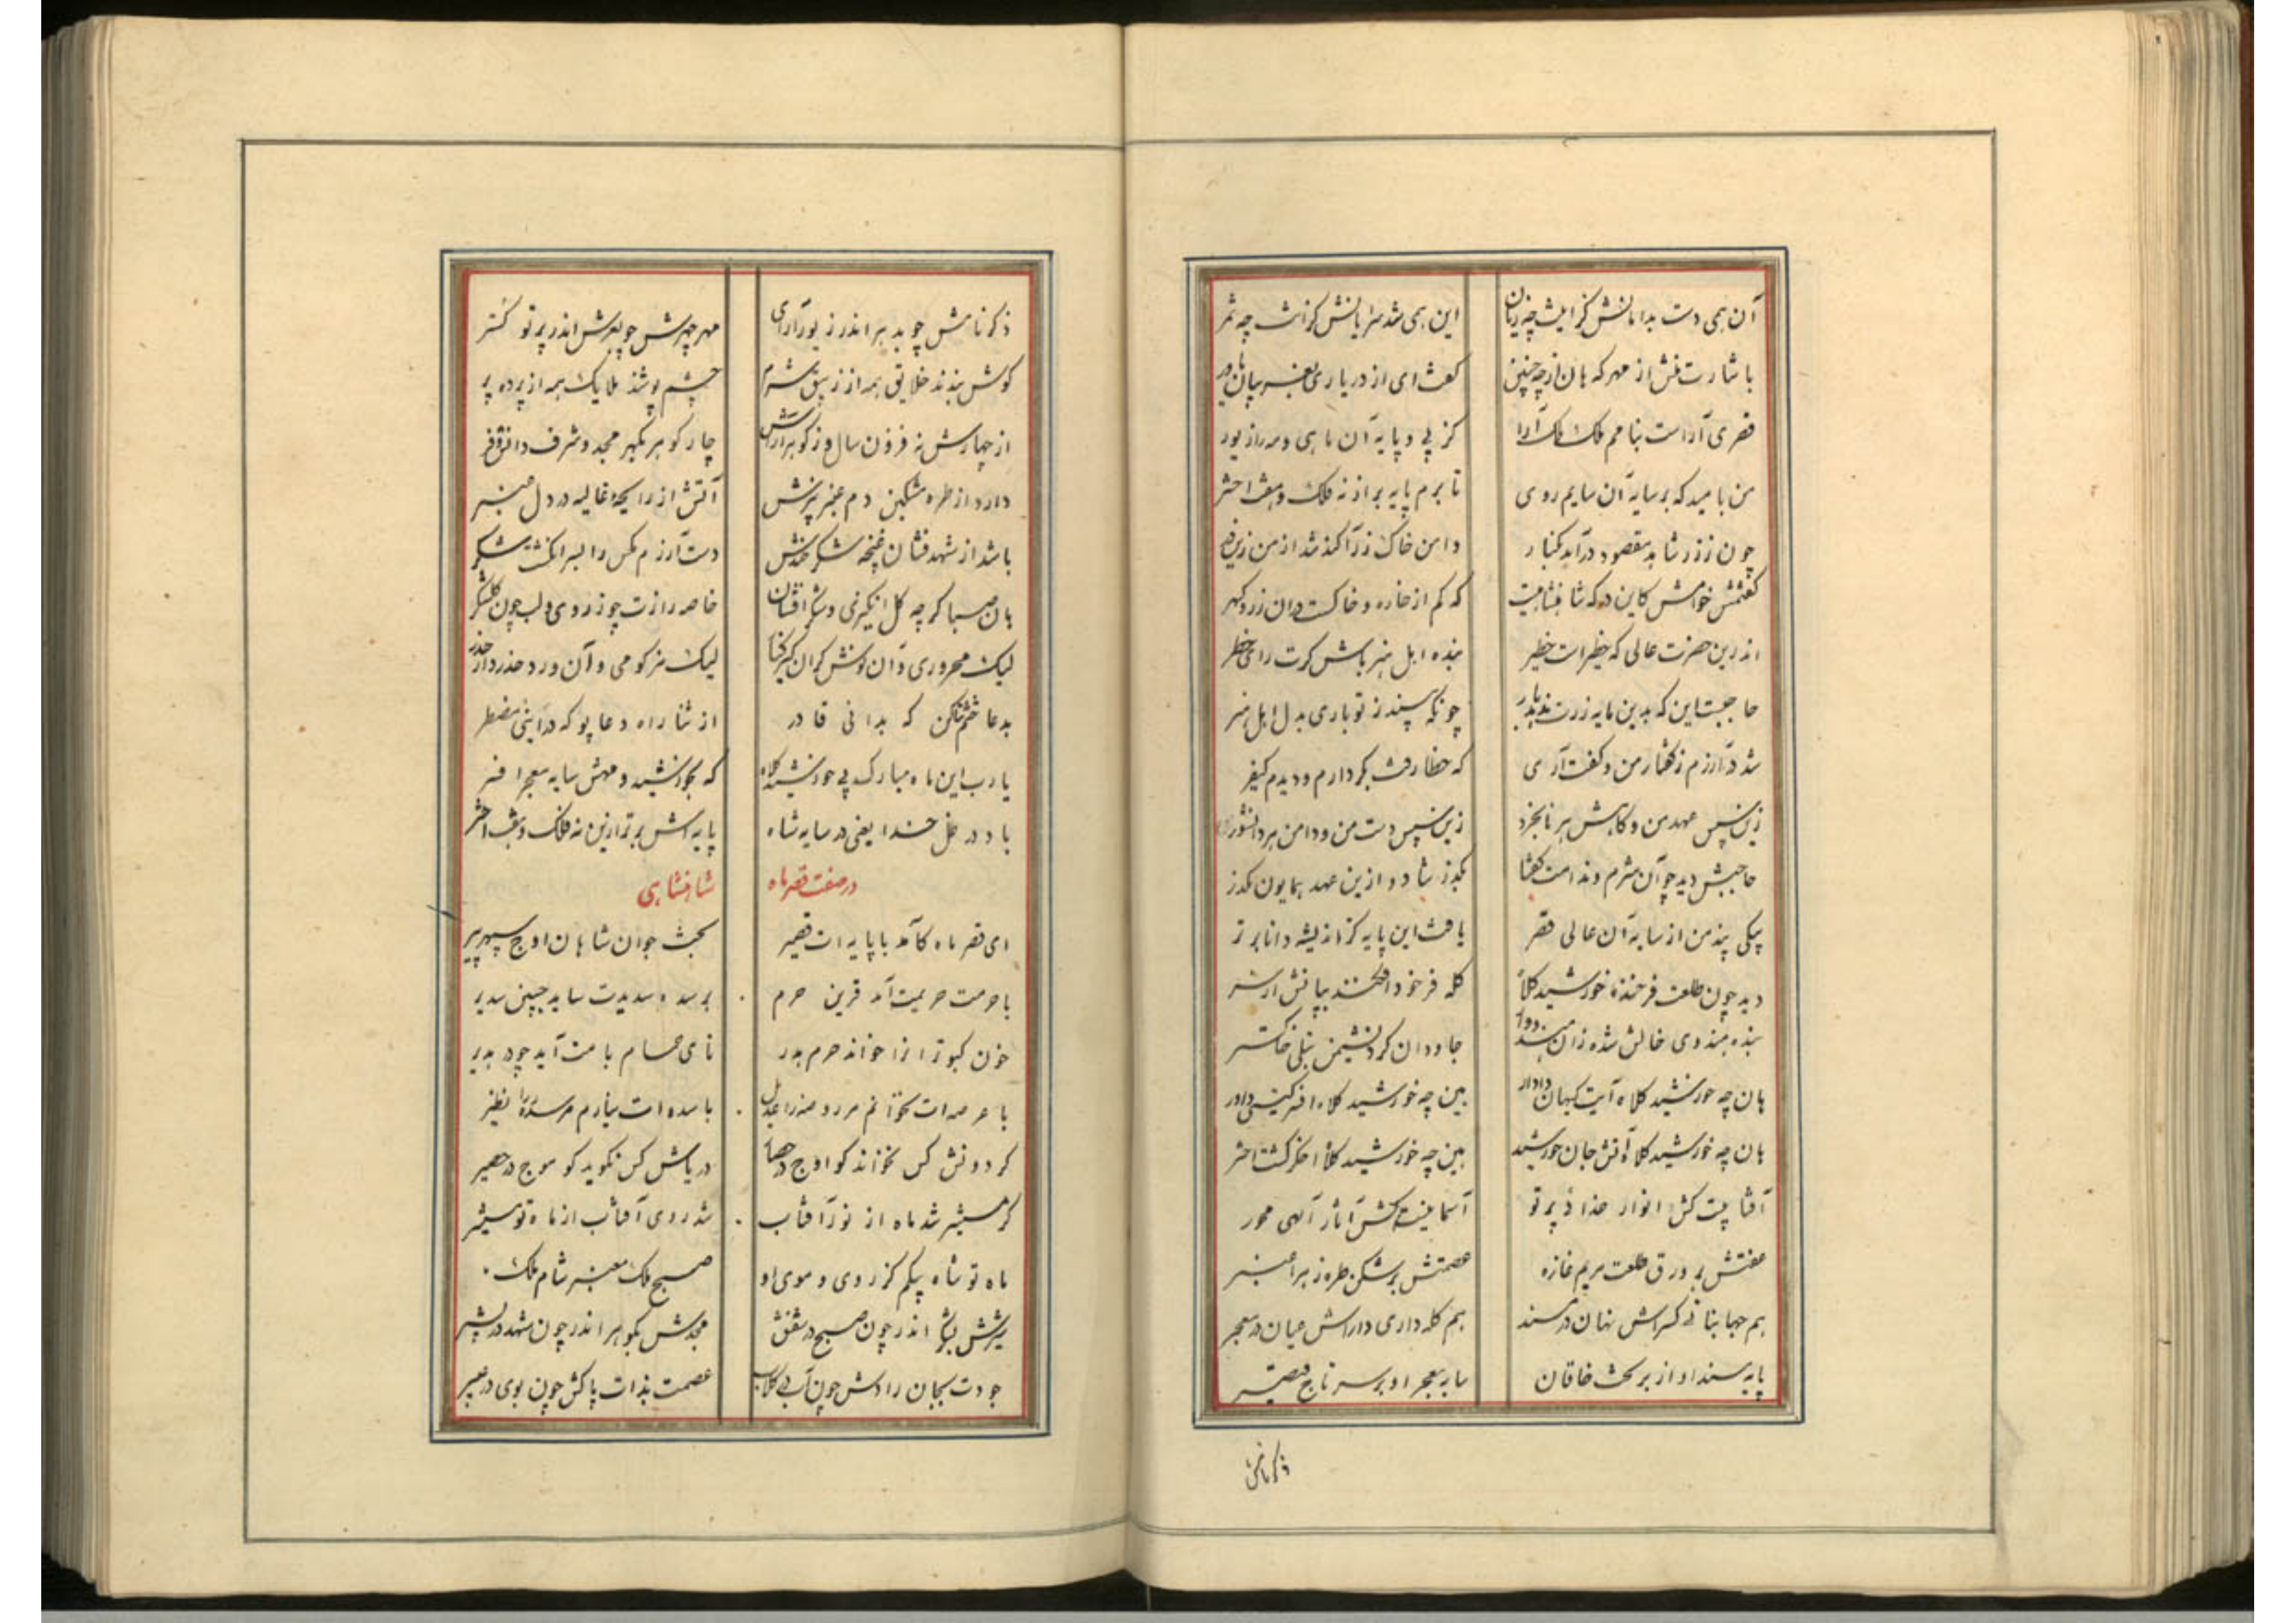 آن همی دست بدامانش کز اینت چه زیان این همی شد سرا پایش کز آنت چه ثمر
با شارت منش از مهر که هان از چه چنین گفت ای از در یاری
قصری آراست بنامم ملک ملک آرا کز پی و پایه آن ماهی و مه راز یور
من بامید که بر سایه آن سایم روی تا برم پایه بر از نه فلک و هفت اختر
چون ز زر شاهد مقصود در آمد بکنار دامن خاک ز زر آکنده شد از من
گفتمش خوامش کاین در که شاهنشاهیست که کم از خاره و خاکست در آن زر و گهر
اندرین حضرت عالی که خطیر است خطیر بنده اهل هنر باش گرت رای خطر
حاجبت این که بدین مایه زرت چونکه پسندد ز تو باری بدل اهل هنر
شد در آزرم ز گفتار من و گفت آری که خطا رفت بکردارم و دیدم کیفر
زین سپس عهد من و کاهش هر نابخرد زین سپس دست من و دامن هر دانشور
حاجبش دید چو آن شرم و ندامت گفتا بگذر شاد و ازین عهد همایون مگذر
پیکی پند من از سایه آن عالی قصر یافت این پایه کز اندیشه دانا برتر
دید چون طلعت فرخنده خورشید کلاه کله فر خود افکند بپایش از سر
بنده هندوی خالش شده زان جاودان کرد نشیمن بتلی خاکستر
هان چه خورشید کلاه آیت کیهان دادار بین چه خورشید کلاه افسر گیتی داور
هان چه خورشید کلاه آتش جان خورشید بین چه خورشید کلاه اخگر کشت اختر
آفتابیست کش انوار خدا پرتو آسمانیست کش آثار الهی محور
عفتش بر ورق طلعت مریم غازه عصمتش بر شکن طره زهرا عنبر
هم جهانبانی کسراش نهان در مسند هم کله داری داراش عیان در معجر
پایه مسند او از بر تخت خاقان سایه معجر او بر سر تاج قیصر
ذکر نامش
ذکر نامش چو بد هر اندر زیور آرای مهر چهرش چو بعرش اندر پرتو گستر
گوش بندند خلایق همه از زیبق شرم چشم پوشند ملایک همه از پرده پر
از چهارش نه فزون سال و ز گوهر آراش چار گوهر بگهر مجد و شرف دانش و فر
دارد از طره مشکین دم عنبر بیزش آتش از رایحه غالیه در دل عنبر
باشد از شهد فشان غنچه شکر خندش دست آزرم مگس را بسر انگشت شکر
هان صبا گر چه گل انگیزی و شکر افشان خاصه رازت چو ز روی و لب چون گلشکر
لیک محروری و آن لیک مزکومی و آن ورد حذر دار حذر
بدعا ختم کن که بدانی قادر از ثنا راه دعا پو که در اینی مضطر
یارب این ماه مبارک پی خورشید کلاه که بخورشید و مهش سایه معجر افسر
باد در ظل خدا یعنی در سایه شاه پایه اش برتر ازین نه فلک و هفت اختر
در صفت قصر ماه شاهنشاهی
ای قصر ماه کآمد با پایه ات قصیر تخت جوان شاهان اوج سپهر پیر
با حرمت حریمت آمد قرین حرم بر سده سدیدت ساید جبین سدیر
خون کبوتر انرا خواند حرم بدر نای حمام بامت آید چو بدیر
با عرصه ات نخوانم مر روضه را عدیل با سده ات نیارم مر سدره را نظیر
گردونش کس نخواند کو اوج در حصا دریاش کس نگوید کو موج در حصیر
گر مستنیر شد ماه از نور آفتاب شد روی آفتاب از ماه تو مستنیر
ماه تو شاه بیکم کز روی و موی او صبح ملک معنبر شام ملک
شیرش بشکر اندر چون صبح در شفق مجدش بگوهر اندر چون شهد در بشیر
جودت بجان رادش چون آب در گلاب عصمت بذات پاکش چون بوی در عبیر